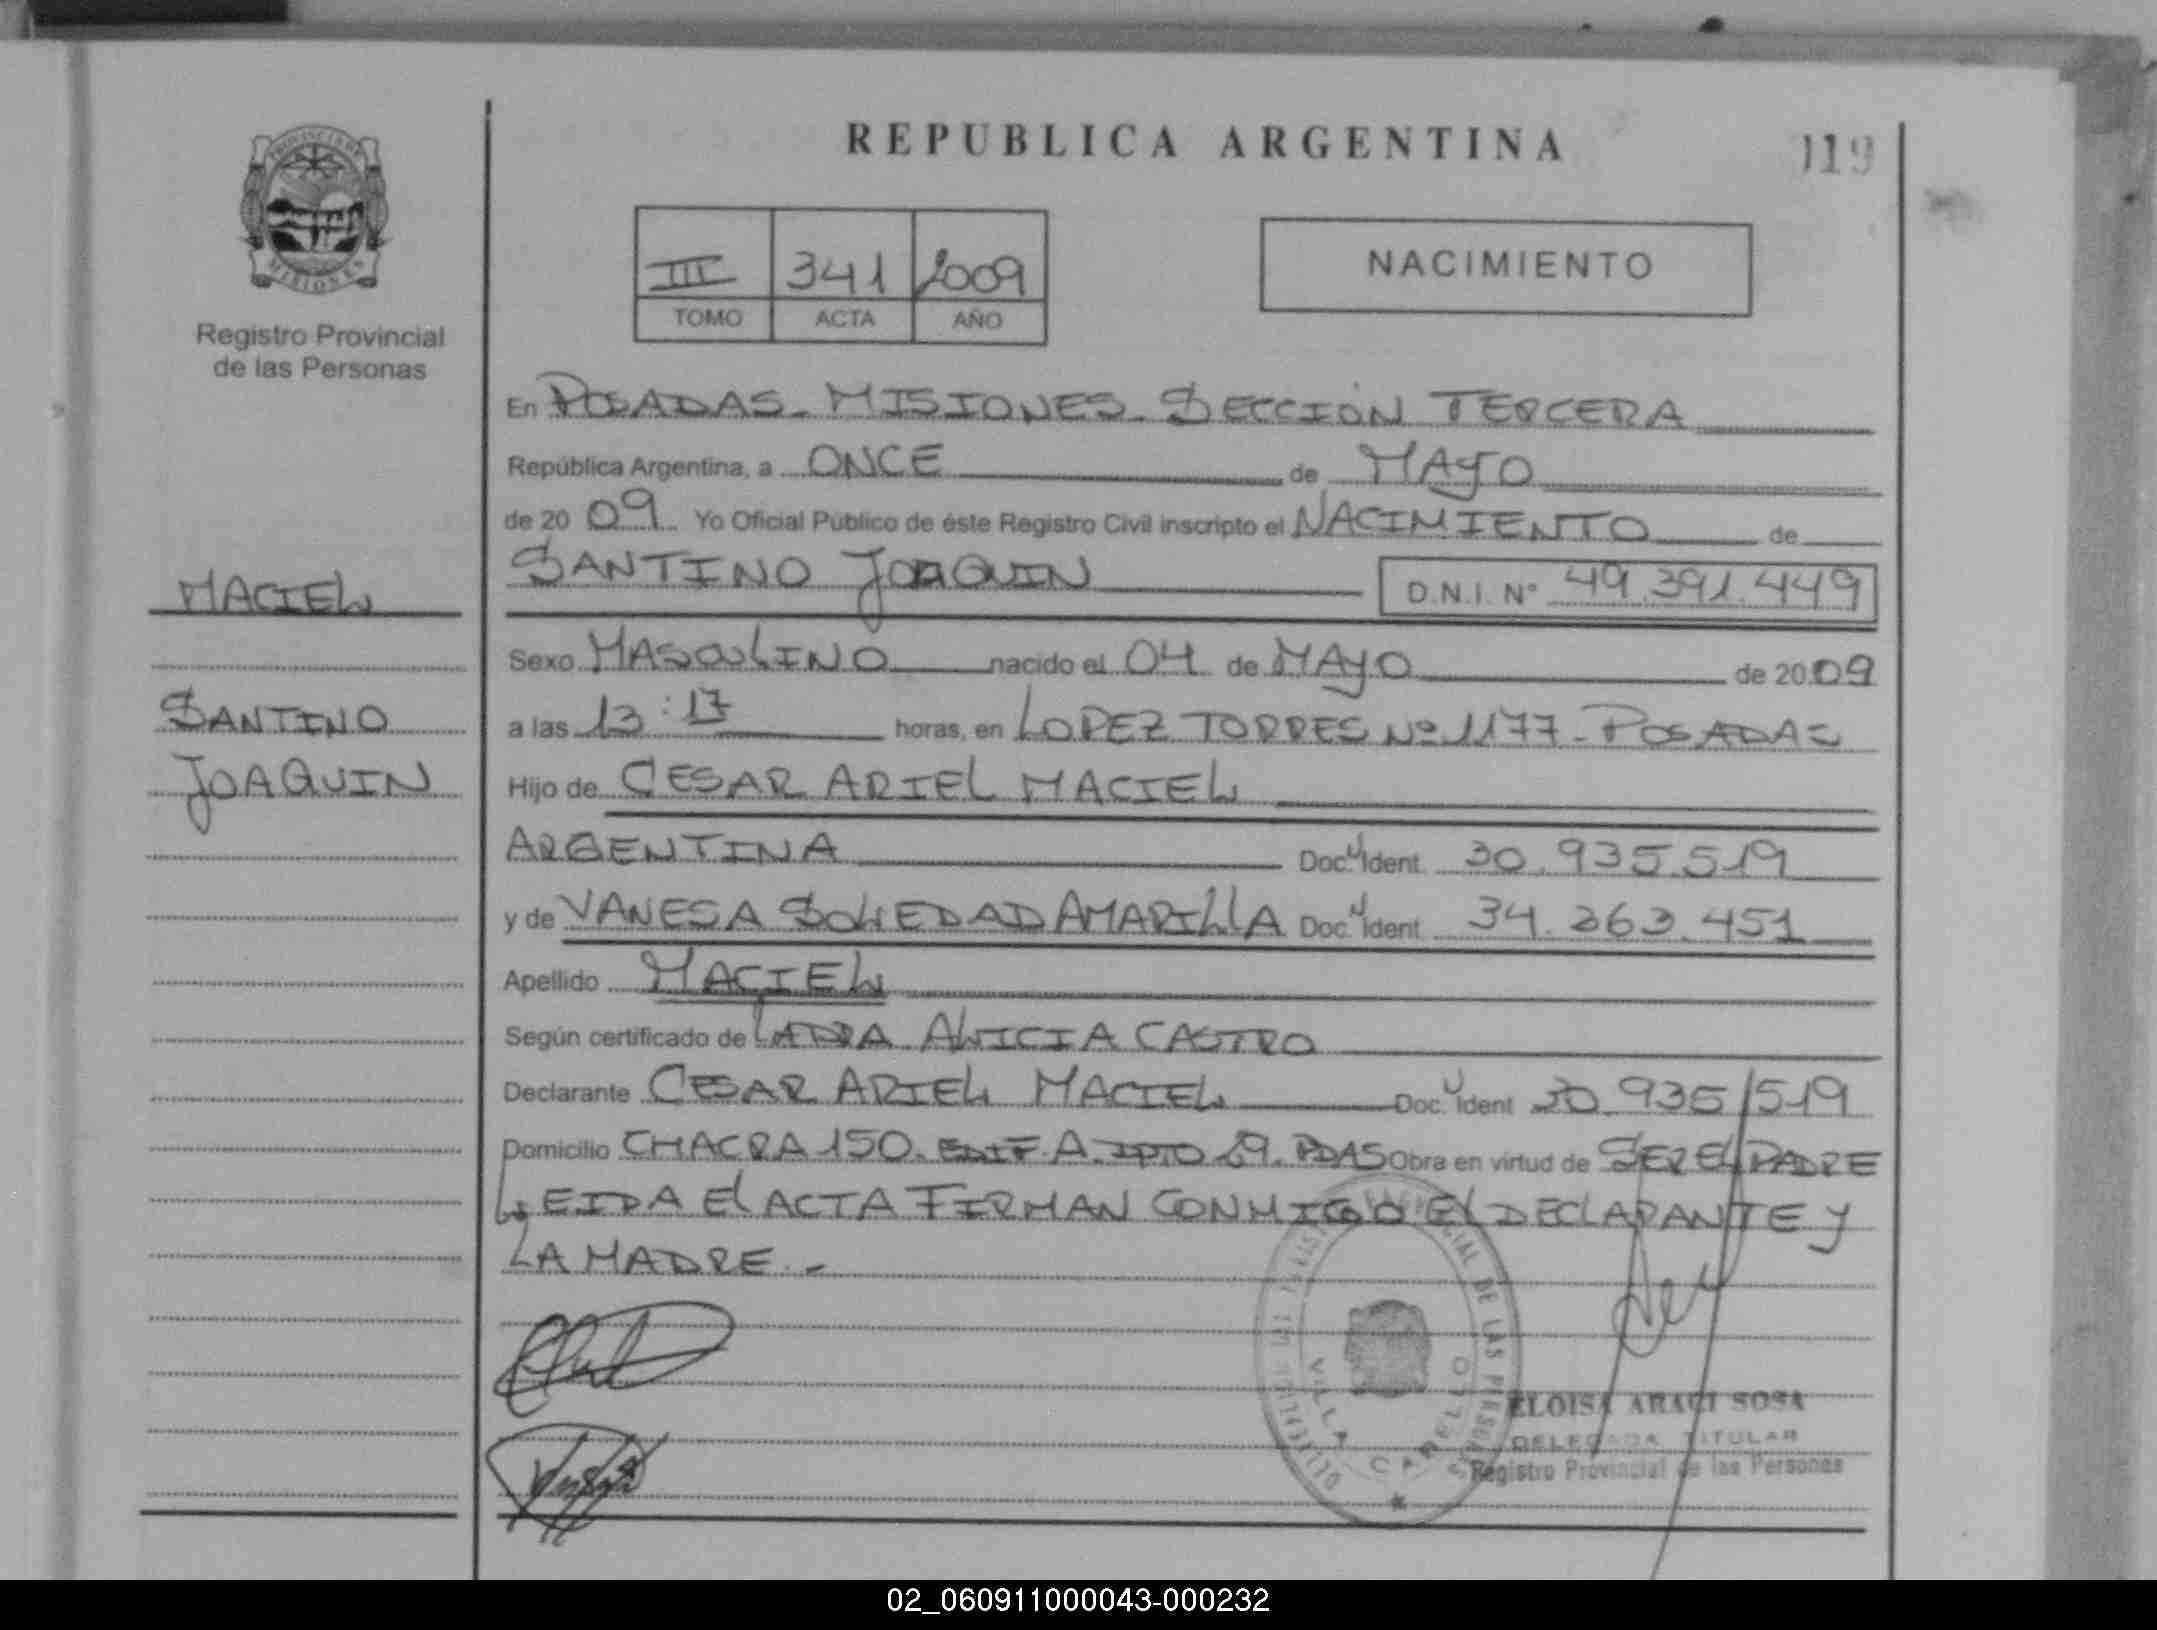 REPUBLICA ARGENTINA
119
PROVINCIA DE
MISIONES
Registro Provincial
de las Personas
III 341 2009
TOMO ACTA AÑO
NACIMIENTO
En POSADAS - MISIONES - SECCIÓN TERCERA
República Argentina, a ONCE de MAYO
de 20 09 Yo Oficial Público de éste Registro Civil inscripto el NACIMIENTO de
SANTINO JOAQUIN D.N.I. Nº 49.391.449
MACIEL
SANTINO
JOAQUIN
Sexo MASCULINO nacido el 04 de MAYO de 20 09
a las 13:17 horas, en LOPEZ TORRES Nº 1177 - POSADAS
Hijo de CESAR ARIEL MACIEL
ARGENTINA Doc. Ident. 30.935.519
y de VANESA SOLEDAD AMARILLA Doc. Ident. 34.363.451
Apellido MACIEL
Según certificado de ALICIA CASTRO
Declarante CESAR ARIEL MACIEL Doc. Ident 30.935/519
Domicilio CHACRA 150. EDIF. A. DPTO 29. PDAS Obra en virtud de SER EL PADRE
LEIDA EL ACTA FIRMAN CONMIGO EL DECLARANTE Y
LA MADRE.-
DE LAS PERSONAS
VILLA CABELLO
ELOISA ARACI SOSA
DELEGADA TITULAR
Registro Provincial de las Personas
02_060911000043-000232